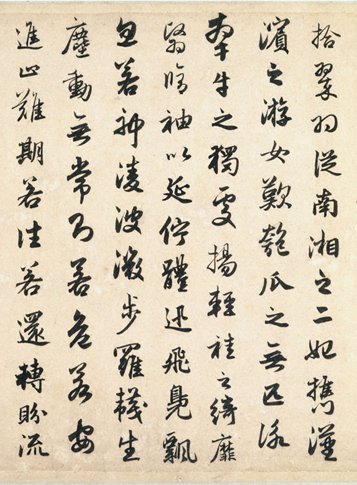 拾翠羽從南湘之二妃攜漢
濱之游女歎匏瓜之無匹詠
牽牛之獨處揚輕袿之綺靡
翳脩袖以延佇體迅飛鳧飄
忽若神淩波微步羅韈生
塵動無常則若危若安
進止難期若往若還轉眄流